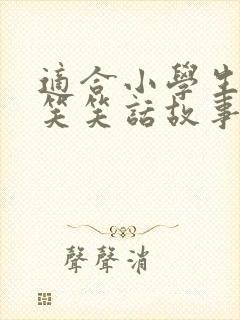 適合小學生
笑笑話故事
聲聲消